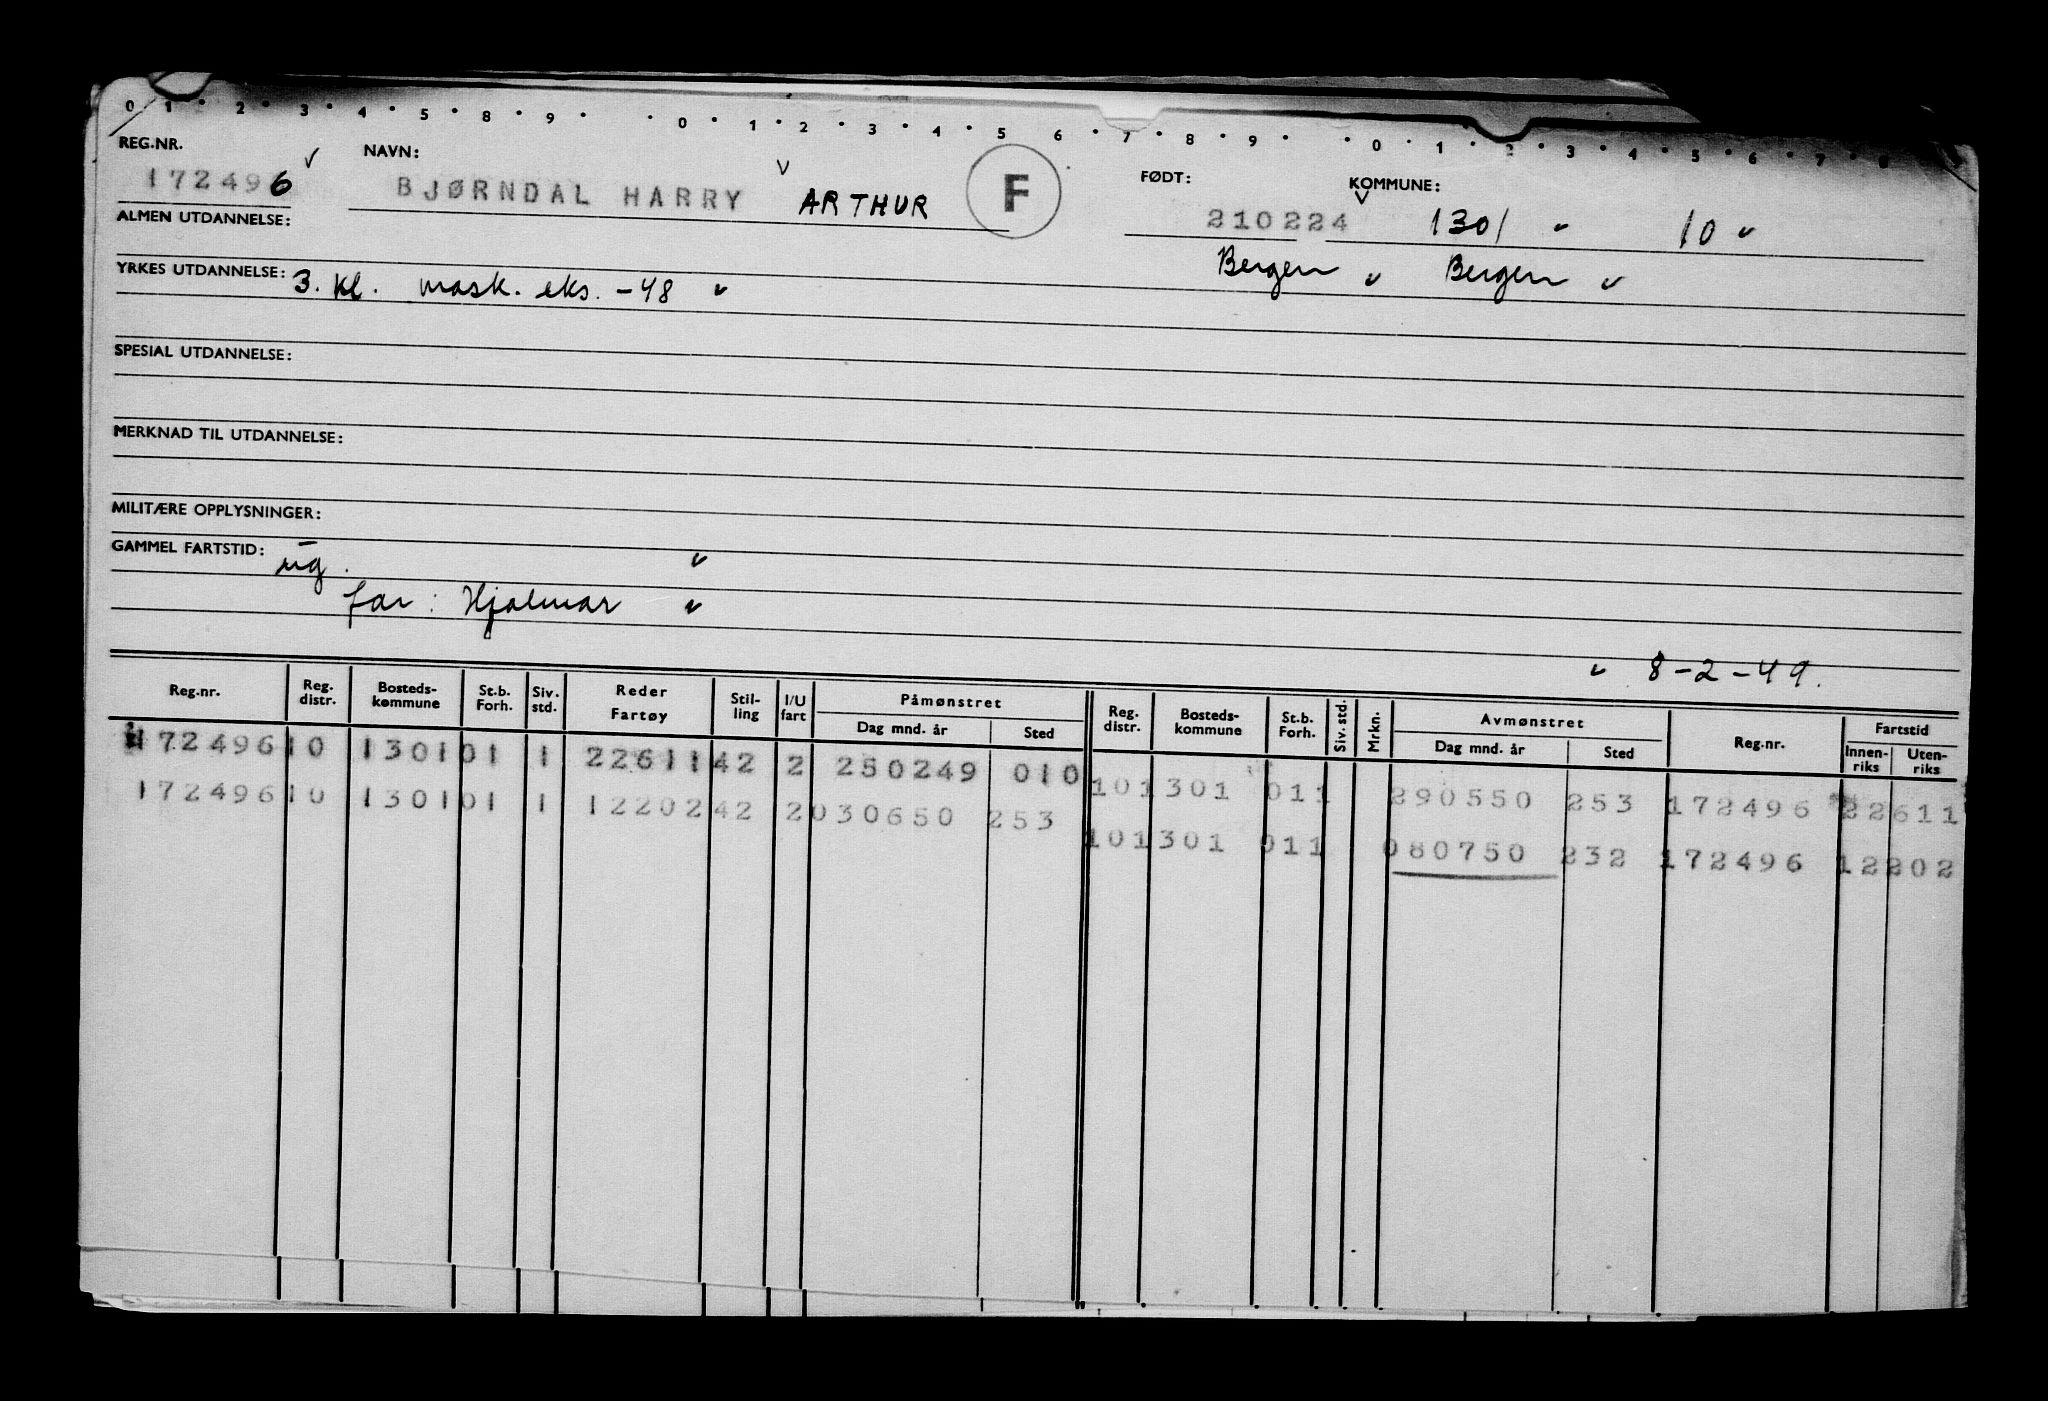 0 1 · 2 · 3 · 4 · 5 · 8 · 9 · · 0 · 1 · 2 · 3 · 4 · 5 6 · 7 · 8 · 9 · · 0 · 1 · 2 · 3 · 4 · 5 · 6 · 7 · 8
REG.NR. NAVN: FØDT: KOMMUNE:
172496 BJØRNDAL HARRY ARTHUR F 210224 1301 10
ALMEN UTDANNELSE: Bergen Bergen
YRKES UTDANNELSE: 3. kl. mask. eks. -48
SPESIAL UTDANNELSE:
MERKNAD TIL UTDANNELSE:
MILITÆRE OPPLYSNINGER:
GAMMEL FARTSTID: ug.
far: Hjalmar
8-2-49.
Reg.nr. Reg. distr. Bosteds- kommune St.b. Forh. Siv. std. Reder Fartøy Stil- ling I/U fart Påmønstret Dag mnd. år Sted Reg. distr. Bosteds- kommune St.b. Forh. Siv. std. Mrkn. Avmønstret Dag mnd. år Sted Reg.nr. Fartstid Innen- riks Uten- riks
172496 10 1301 01 1 22611 42 2 250249 010 10 1301 01 1 290550 253 172496 22611
172496 10 1301 01 1 12202 42 2 030650 253 10 1301 01 1 080750 232 172496 12202